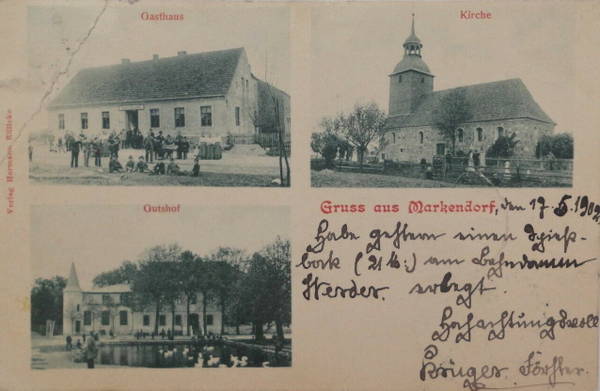 Gasthaus
Kirche
Verlag Hermann
Gutshof
Gruss aus Markendorf, den 17.5.1902
Habe gestern einen Spieß-
bock (21 ) am Bahndamm
Werder. erlegt.
Hochachtungsvoll
Krüger. Förster.